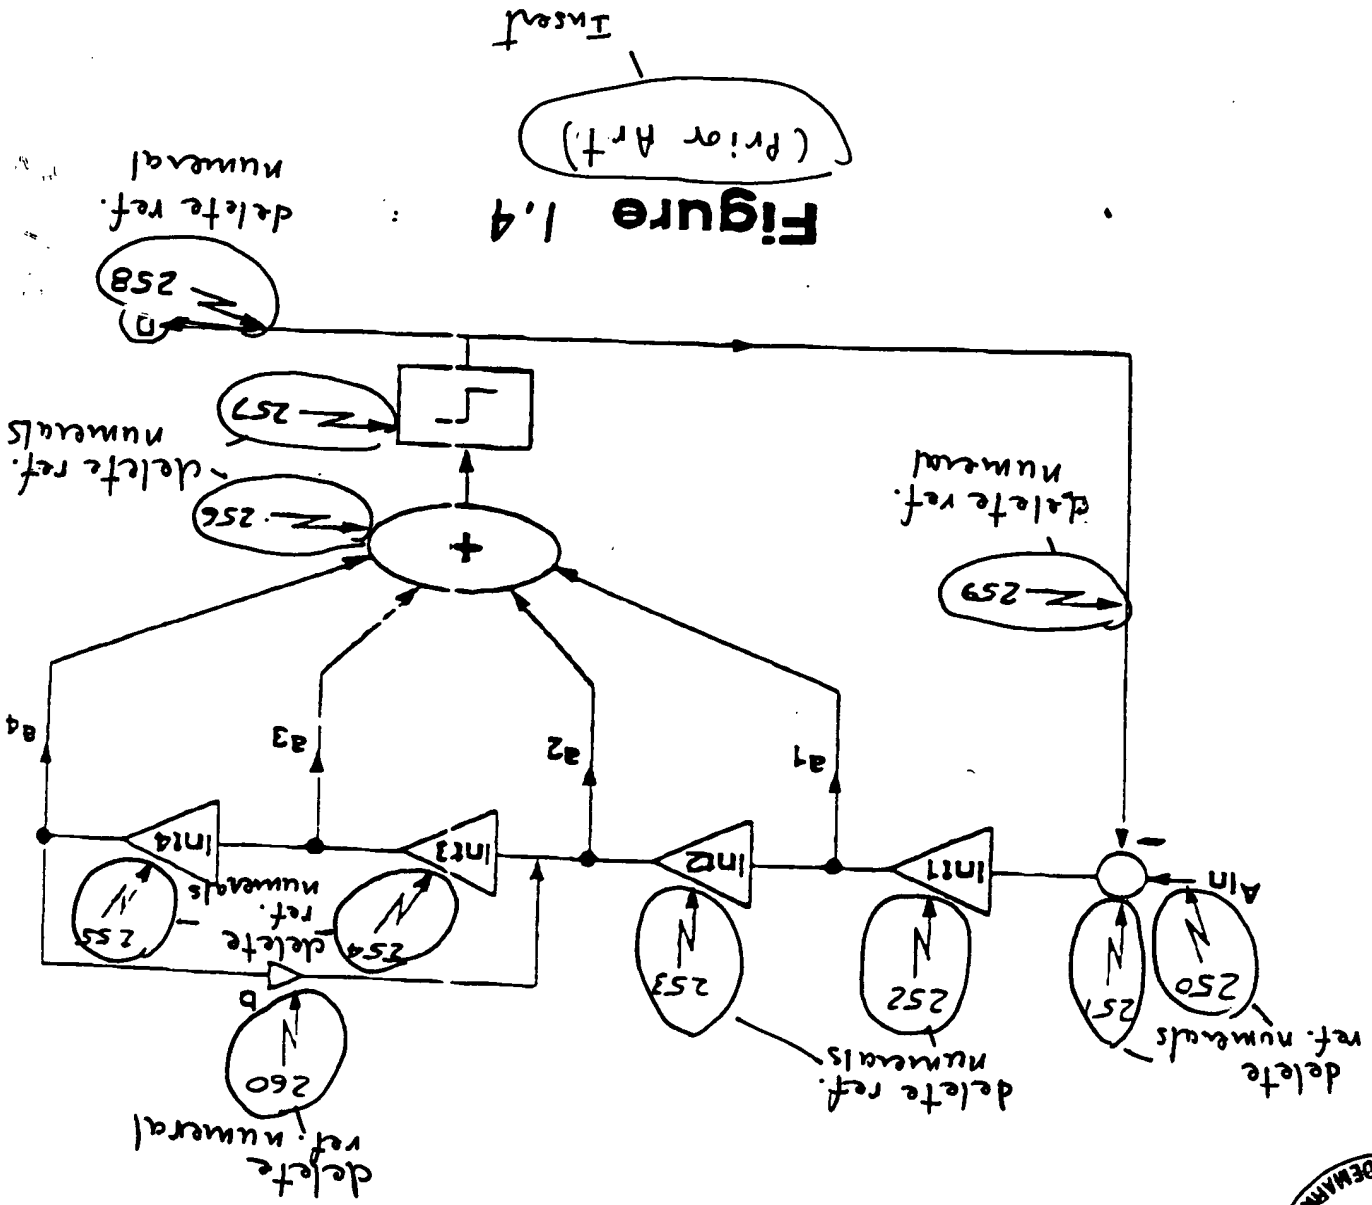 delete
ref. numeral
260
b
delete
ref. numerals
250
251
delete ref.
numerals
252
253
delete
ref.
numerals
254
255
AIn
Int1
Int2
Int3
Int4
-
a1
a2
a3
a4
259
delete ref.
numeral
+
256
delete ref.
numerals
257
D
258
delete ref.
numeral
Figure 1.4
(Prior Art)
Insert